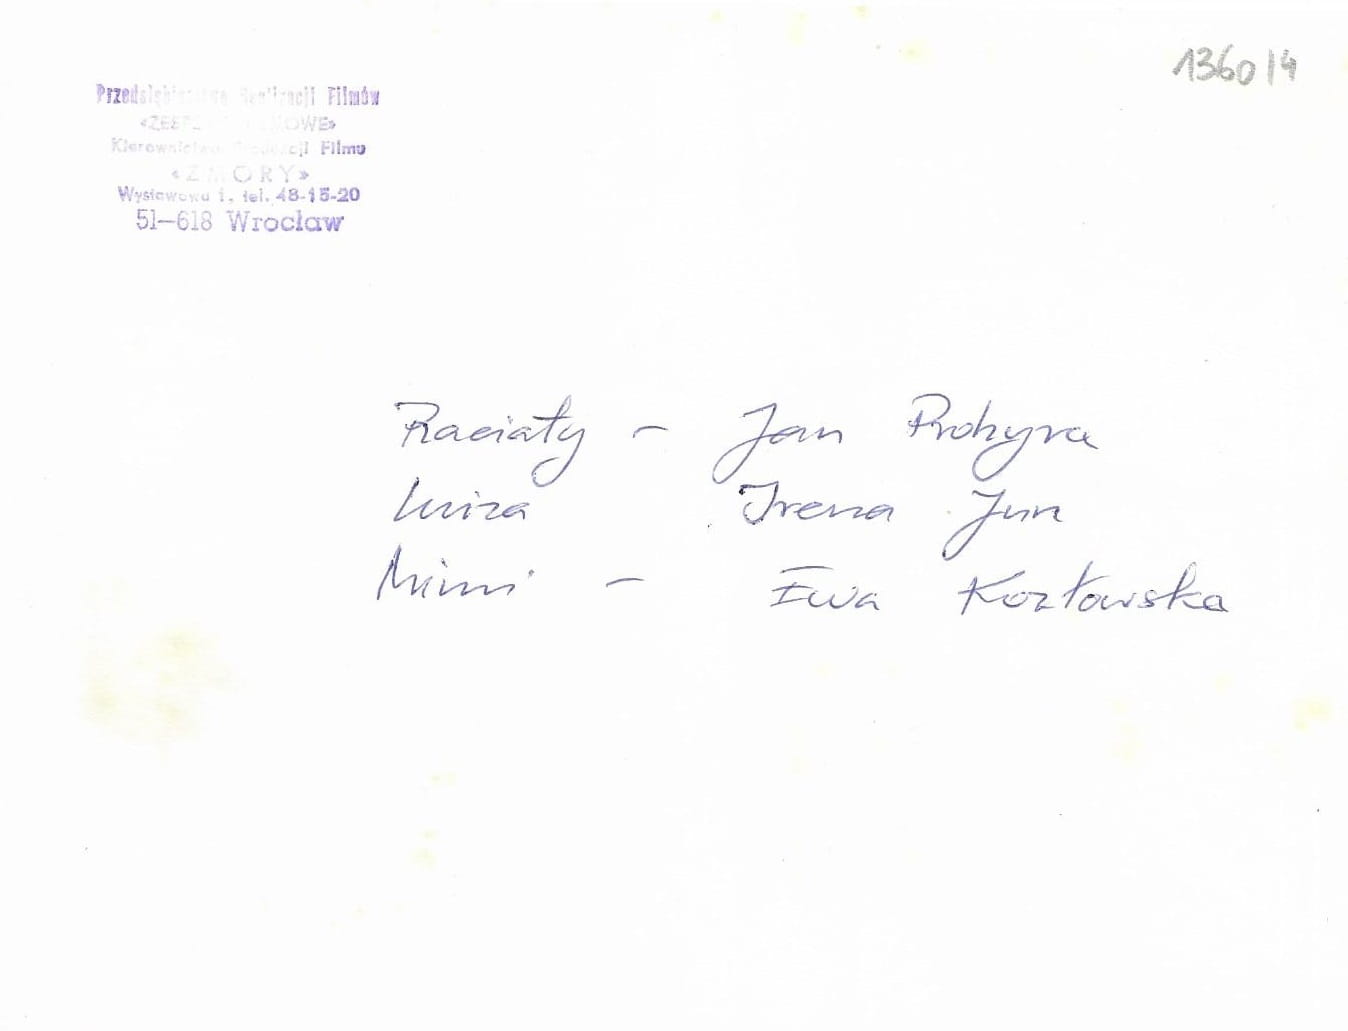 1360/4
Przedsiębiorstwo Realizacji Filmów
«ZESPOŁY FILMOWE»
Kierownictwo Produkcji Filmu
«ZMORY»
Wystawowa 1, tel. 48-15-20
51-618 Wrocław
Raciąty - Jan Prohyra
Luiza Irena Jun
Mimi - Ewa Kozłowska